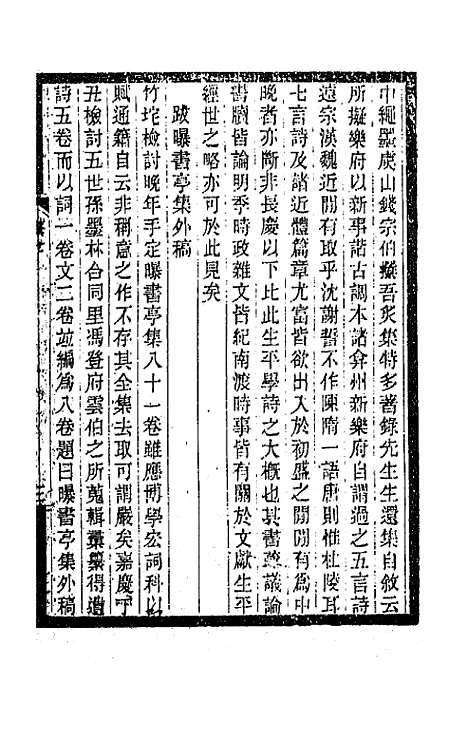 巾繩墨虞山錢宗伯纂吾炙集特多蓍錄先生生還集自敘云
所擬樂府以新事諧古調本諸弇州新樂府自謂過之五言詩
遠宗漢魏近間有取乎沈謝誓不作陳隋一語唐則惟杜陵耳
七言詩及諸近體篇章尤富皆欲出入於初盛之間間有為中
晚者亦斷非長慶以下比此生平學詩之大概也其書疏議論
書牘皆論明季時政雜文皆紀南渡時事皆有關於文獻生平
經世之略亦可於此見矣
跋曝書亭集外稿
竹垞檢討晚年手定曝書亭集八十一卷雖應博學宏詞科以
賦通籍自云非稱意之作不存其全集去取可謂嚴矣嘉慶丁
丑檢討五世孫墨林合同里馮登府雲伯之所蒐輯彙纂得遺
詩五卷而以詞一卷文二卷竝編為八卷題曰曝書亭集外稿